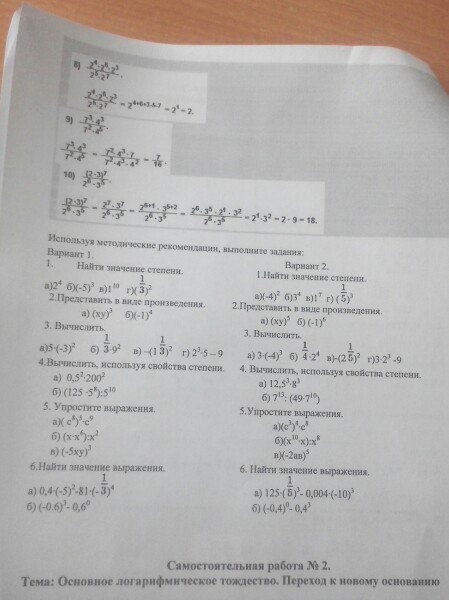 8) 2⁴·2⁶·2³ / 2⁵·2⁷ .
2⁴·2⁶·2³ / 2⁵·2⁷ = 2⁴⁺⁶⁺³⁻⁵⁻⁷ = 2¹ = 2.
9) 7³·4³ / 7²·4⁵ .
7³·4³ / 7²·4⁵ = 7²·4³·7 / 7²·4³·4² = 7/16 .
10) (2·3)⁷ / 2⁶·3⁵ .
(2·3)⁷ / 2⁶·3⁵ = 2⁷·3⁷ / 2⁶·3⁵ = 2⁶⁺¹·3⁵⁺² / 2⁶·3⁵ = 2⁶·3⁵·2¹·3² / 2⁶·3⁵ = 2¹·3² = 2·9 = 18.
Используя методические рекомендации, выполните задания:
Вариант 1.
1. Найти значение степени.
а)2⁴ б)(-5)³ в)1¹⁰ г)(1/3)²
2.Представить в виде произведения.
а) (xy)³ б)(-1)⁴
3. Вычислить.
а)5·(-3)² б) 1/3·9² в) –(1 1/3)² г) 2³·5 – 9
4.Вычислить, используя свойства степени.
а) 0,5²·200²
б) (125 ·5⁸):5¹⁰
5. Упростите выражения.
а)( c⁸)⁵·c⁹
б) (x·x⁶):x²
в) (-5xy)³
6.Найти значение выражения.
а) 0,4·(-5)²-81·(-1/3)⁴
б) (-0.6)³- 0,6⁰
Вариант 2.
1.Найти значение степени.
а)(-4)² б)3⁴ в)1⁷ г) (1/5)³
2.Представить в виде произведения.
а) (xy)⁵ б) (-1)⁶
3. Вычислить.
а) 3·(-4)³ б) 1/4·2⁴ в)-(2 1/5)² г)3·2³ -9
4. Вычислить, используя свойства степени.
а) 12,5³·8³
б) 7¹³: (49·7¹⁰)
5.Упростите выражения.
а)(c³)⁴·c⁸
б)(x¹⁰·x):x⁸
в)(-2ав)⁵
6. Найти значение выражения.
а) 125·(1/5)³- 0,004·(-10)³
б) (-0,4)⁰- 0,4³
Самостоятельная работа № 2.
Тема: Основное логарифмическое тождество. Переход к новому основанию